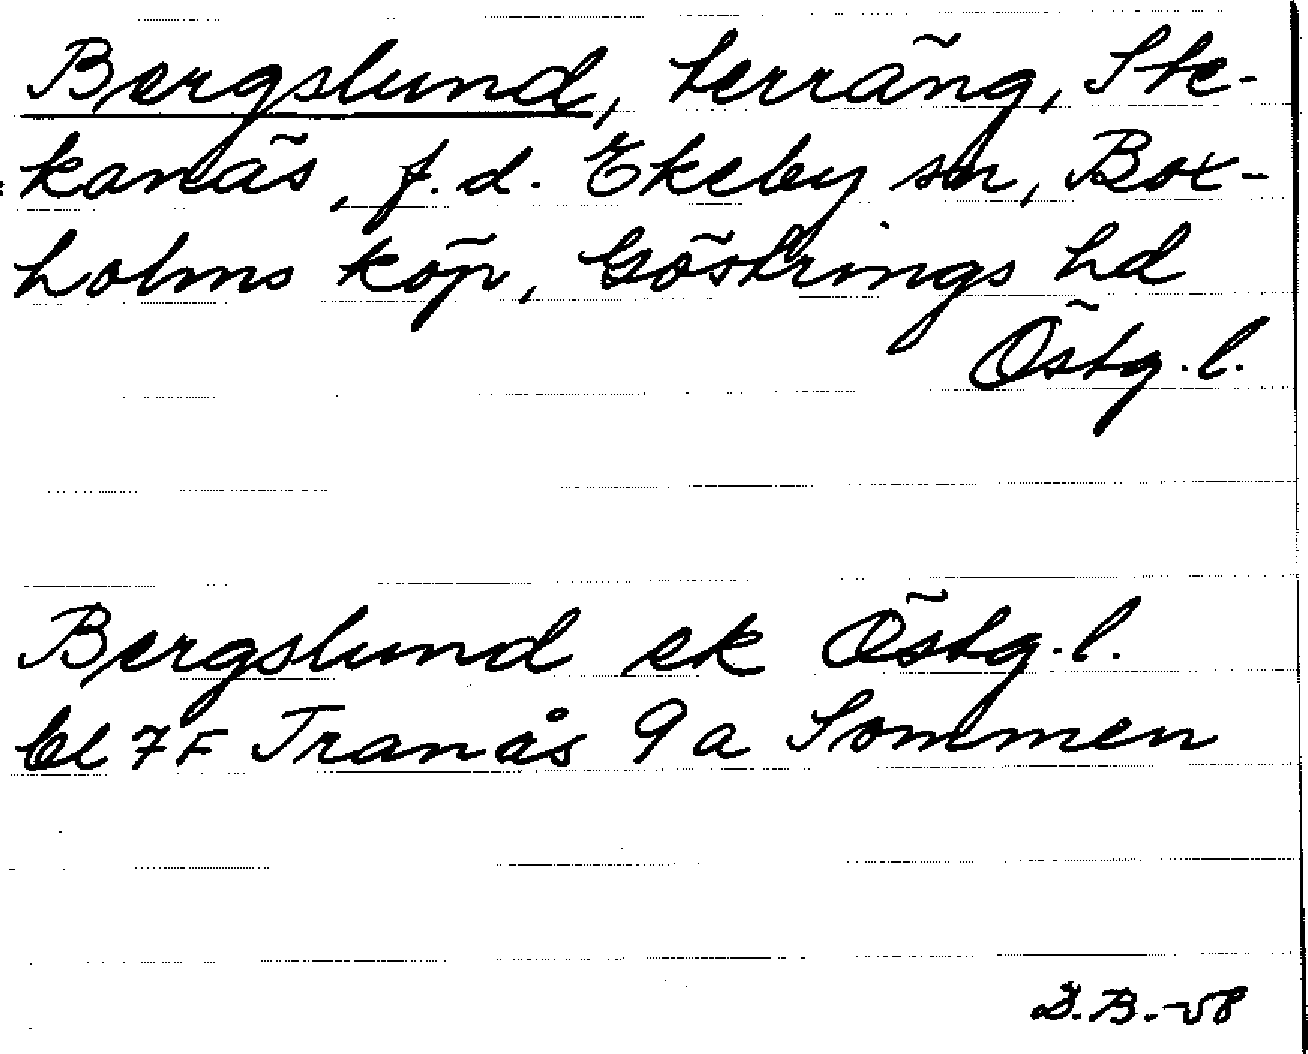 Bergslund, terräng, Ste-
kanäs, f.d. Ekeby sn, Box-
holms köp, Göstrings hd
Östg.l.
Bergslund ek Östg.l.
bl 7F Tranås 9a Sommen
B.B.-58